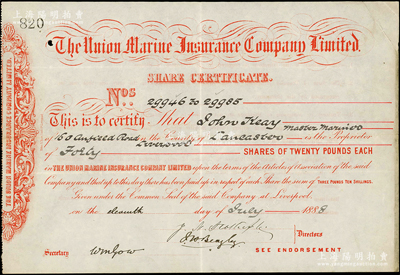 820
The Union Marine Insurance Company Limited.
SHARE CERTIFICATE.
Nos 29946 to 29985
This is to certify That John Keay
Master Mariner
of 60 Anfield Road Liverpool in the County of Lancaster is the Proprietor
of Forty SHARES OF TWENTY POUNDS EACH
IN THE UNION MARINE INSURANCE COMPANY LIMITED upon the terms of the Articles of Association of the said
Company and that up to this day there has been paid up in respect of each Share the sum of THREE POUNDS TEN SHILLINGS.
Given under the Common Seal of the said Company at Liverpool.
on the eleventh day of July 1888
Directors
Secretary
SEE ENDORSEMENT.
THE UNION MARINE INSURANCE COMPANY LIMITED.